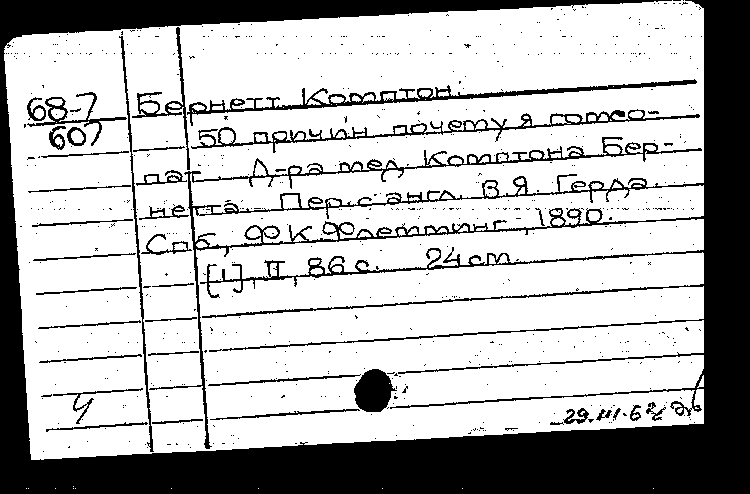 68-7
607
Бернетт Комптон.
50 причин почему я гомео-
пат. Д-ра мед. Комптона Бер-
нетта. Пер. с англ. В.Я. Герда.
Спб., Ф.К. Флемминг, 1890.
[1], II, 86 с. 24 см.
Ч
29.III.68